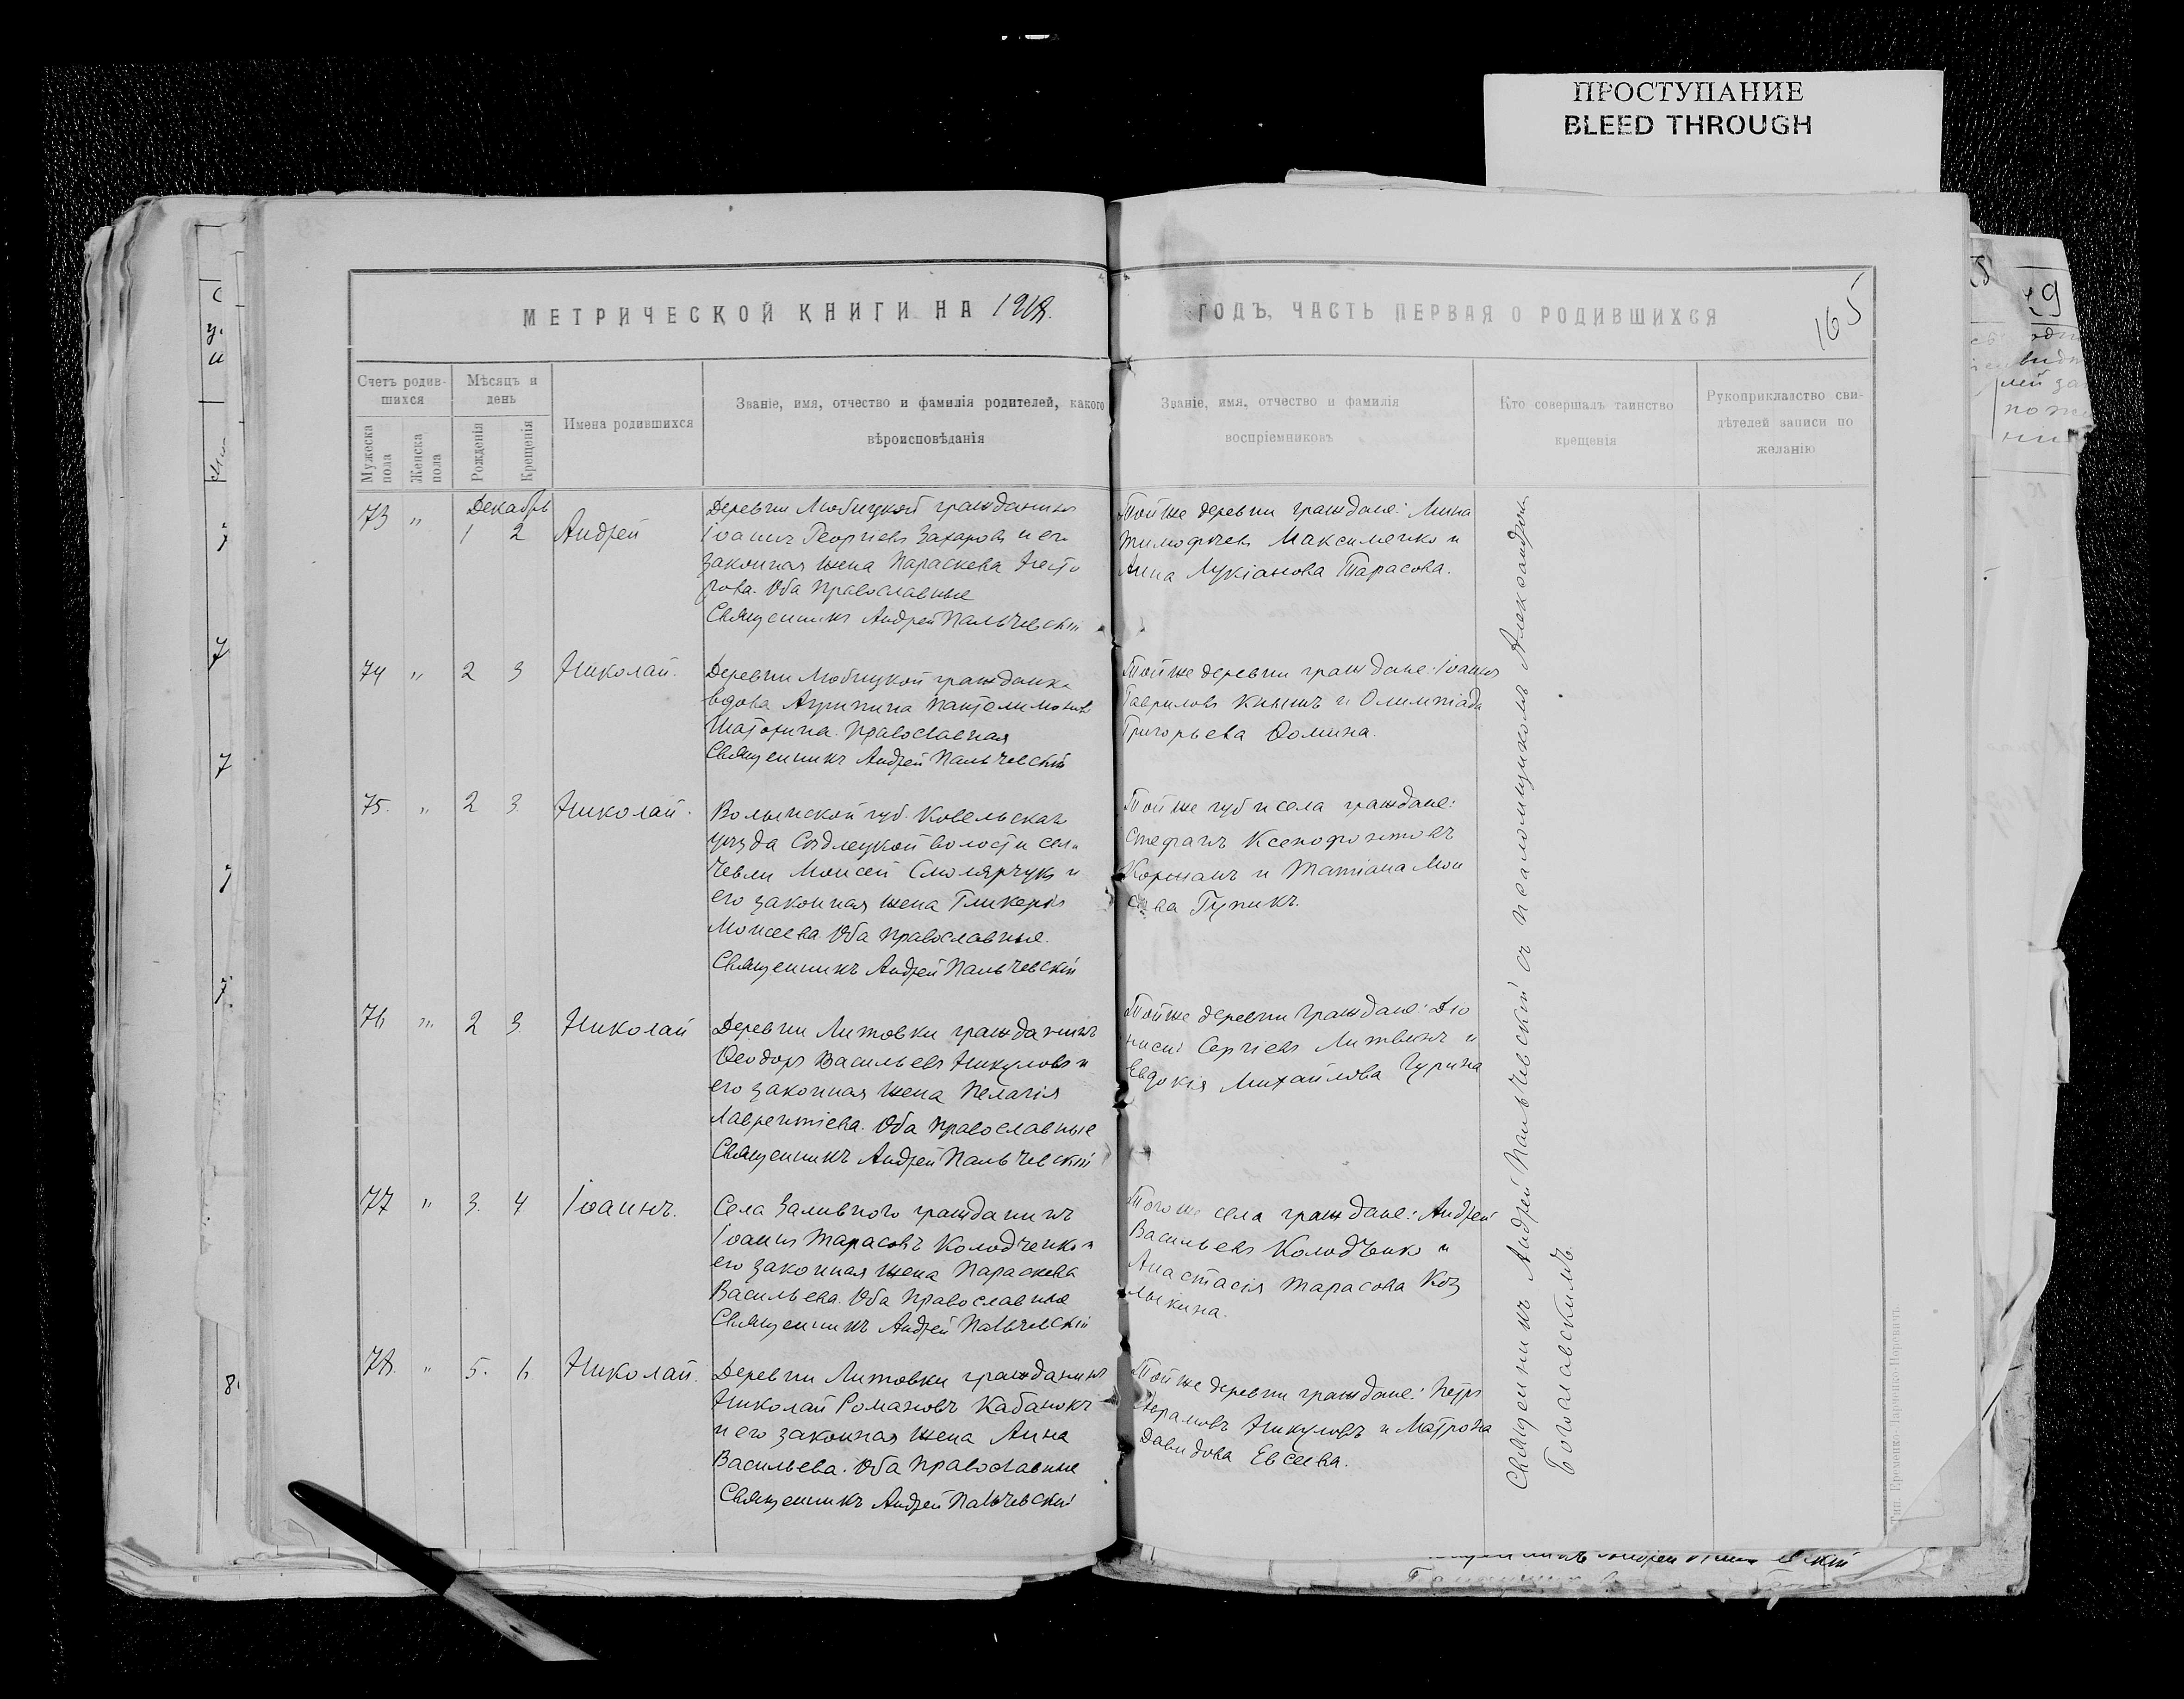 ПРОСТУПАНИЕ
BLEED THROUGH
МЕТРИЧЕСКОЙ КНИГИ НА 1918.
ГОДЪ, ЧАСТЬ ПЕРВАЯ О РОДИВШИХСЯ
165
Счетъ родив-
шихся
Мужеска
пола
Женска
пола
Мѣсяцъ и
день
Рожденія
Крещенія
Имена родившихся
Званіе, имя, отчество и фамилія родителей, какого
вѣроисповѣданія
Званіе, имя, отчество и фамилія
воспріемниковъ
Кто совершалъ таинство
крещенія
Рукоприкладство сви-
дѣтелей записи по
желанію
Декабрь
73 " 1 2 Андрей
Деревни Любицкой гражданинъ
Іоаннъ Георгіевъ Захаровъ и его
законная жена Параскева Несто
рова. Оба Православные
Священникъ Андрей Пальчевскій
Той же деревни граждане: Мина
Тимофѣевъ Максименко и
Анна Лукіанова Тарасова.
74 " 2 3 Николай.
Деревни Любицкой гражданка
вдова Агрипина Пантелимонова
Православная
Священникъ Андрей Пальчевскій
Той же деревни граждане: Іоаннъ
Гавриловъ Книшъ и Олимпіада
Григорьева Ѳомина.
75. " 2 3 Николай.
Волынской губ. Ковельскаго
уѣзда Сѣдлецкой волости села
Чевли Моисей Смолярчукъ и
его законная жена Гликерія
Моисеева. Оба православные.
Священникъ Андрей Пальчевскій
Той же губ и села граждане:
Стефанъ Ксенофонтовъ
Коршанъ и Татіана Мои
сеева Гупикъ.
76 " 2 3 Николай
Деревни Литовки гражданинъ
Ѳеодоръ Васильевъ Никуловъ и
его законная жена Пелагія
Лаврентіева. Оба православные
Священникъ Андрей Пальчевскій
Той же деревни граждане: Діо
нисій Сергіевъ Литвинъ и
Евдокія Михайлова Чурина
77 " 3. 4 Іоаннъ.
Села Заливного гражданинъ
Іоаннъ Тарасовъ Колодченко и
его законная жена Параскева
Васильева. Оба Православные
Священникъ Андрей Пальчевскій
Того же села граждане: Андрей
Васильевъ Колодченко и
Анастасія Тарасова Коз
лыкина.
78. " 5. 6 Николай.
Деревни Литовки гражданинъ
Николай Романовъ Кабанокъ
и его законная жена Анна
Васильева. Оба Православные
Священникъ Андрей Пальчевскій
Той же деревни граждане: Петръ
Никуловъ и Матрона
Давидова Евсеева.
Священникъ Андрей Пальчевскій съ псаломщикомъ Александромъ
Богославскимъ.
Тип. Еременко-Заренко-Норевичъ